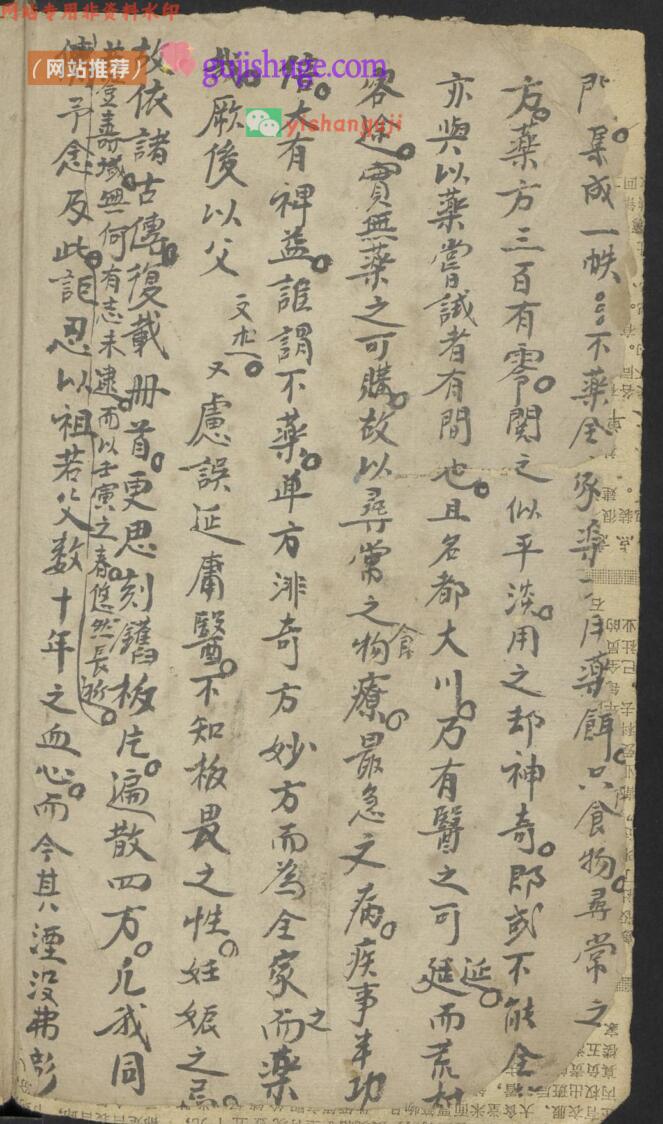 网站专用非资料水印
（网站推荐）
gujishuge.com
yishanguji
集成一帙。不薬全 薬餌。只食物。尋常之
方。薬方三百有零。関之似平淡。用之却神奇。即或不能全
亦與以薬嘗試者有間也。且名都大川。乃有醫之可延。而荒村
客途。實無薬之可購。故以尋常之食物療。最急之病。疾事半功
倍。大有裨益。誰謂不薬。单方非奇方妙方而為全家之而薬
哉。厥後以父文杰。又慮誤延庸醫。不知板畏之性。妊娠之忌
故依諸古傳。復載册首。更思刻鐫板片。遍散四方。凡我同
登壽域無何有志未逮。而以壬寅之春。悠然長逝。
予念及此。詎忍以祖若父数十年之血心。而令其湮没弗彰